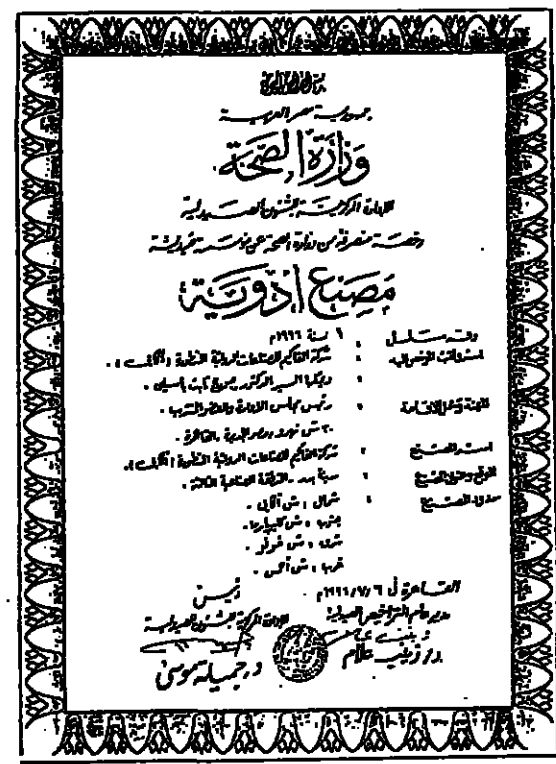 جمهورية مصر العربية
وزارة الصحة
الادارة المركزية للشئون الصيدلية
رخصة منصرفة من وزارة الصحة عن مؤسسة صيدلية
مصنع أدوية
رقم مسلسل : ١ لسنة ١٩٩٦م
اسم ولقب المرخص إليه : شركة للصناعات الدوائية المتطورة
السيد الدكتور ممدوح ثابت باسيلى .
المهنة ومحل الاقامة : رئيس مجلس الادارة والعضو المنتدب .
٣٠ ش نهرو مصر الجديدة - القاهرة .
اسم المصنع : شركة للصناعات الدوائية المتطورة
الموقع : مدينة بدر - المنطقة الصناعية الثالثة .
حدود المصنع : شمال : ش
جنوب : ش
شرق : ش
غرب : ش
القاهرة فى ١٩٩٦/٧/٦م
مدير عام التراخيص الصيدلية
رئيس
الادارة المركزية للشئون الصيدلية
د/ زينب علام
د. جميلة موسى